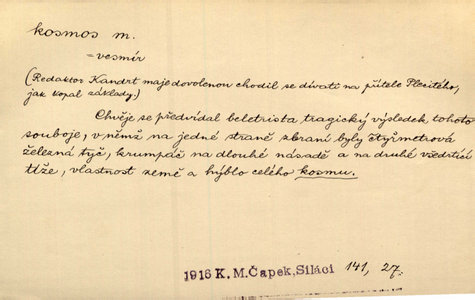 kosmos m.
= vesmír
(Redaktor Kandrt maje dovolenou chodil se dívati na přítele Plecitého,
jak kopal základy.)
Chvěje se předvídal beletrista tragický výsledek tohoto
souboje, v němž na jedné straně zbraní byly čtyřmetrová
železná tyč, krumpáč na dlouhé násadě a na druhé všedrtící
tíže, vlastnost země a hýblo celého kosmu.
1916 K. M. Čapek, Siláci 141, 27.